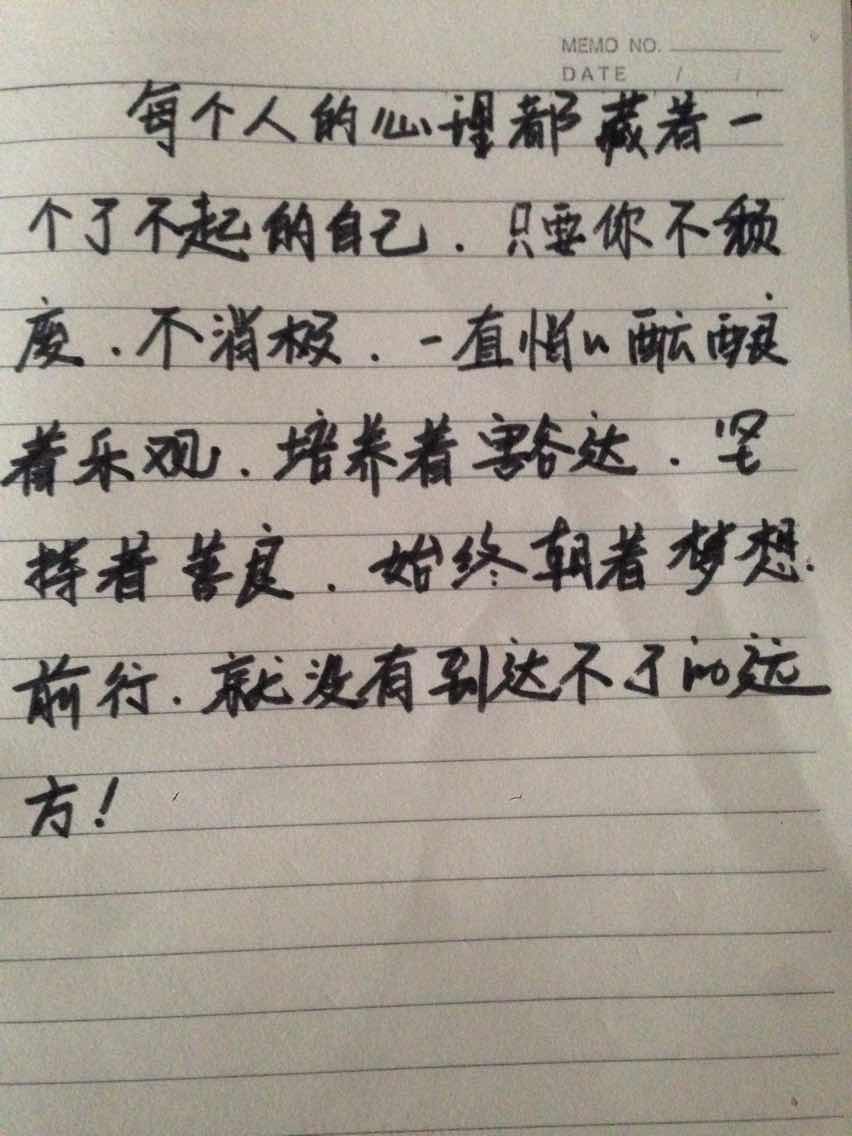 MEMO NO.
DATE / /
每个人的心理都藏着一
个了不起的自己．只要你不颓
废．不消极．一直悄悄酝酿
着乐观．培养着豁达．坚
持着善良．始终朝着梦想．
前行．就没有到达不了的远
方！